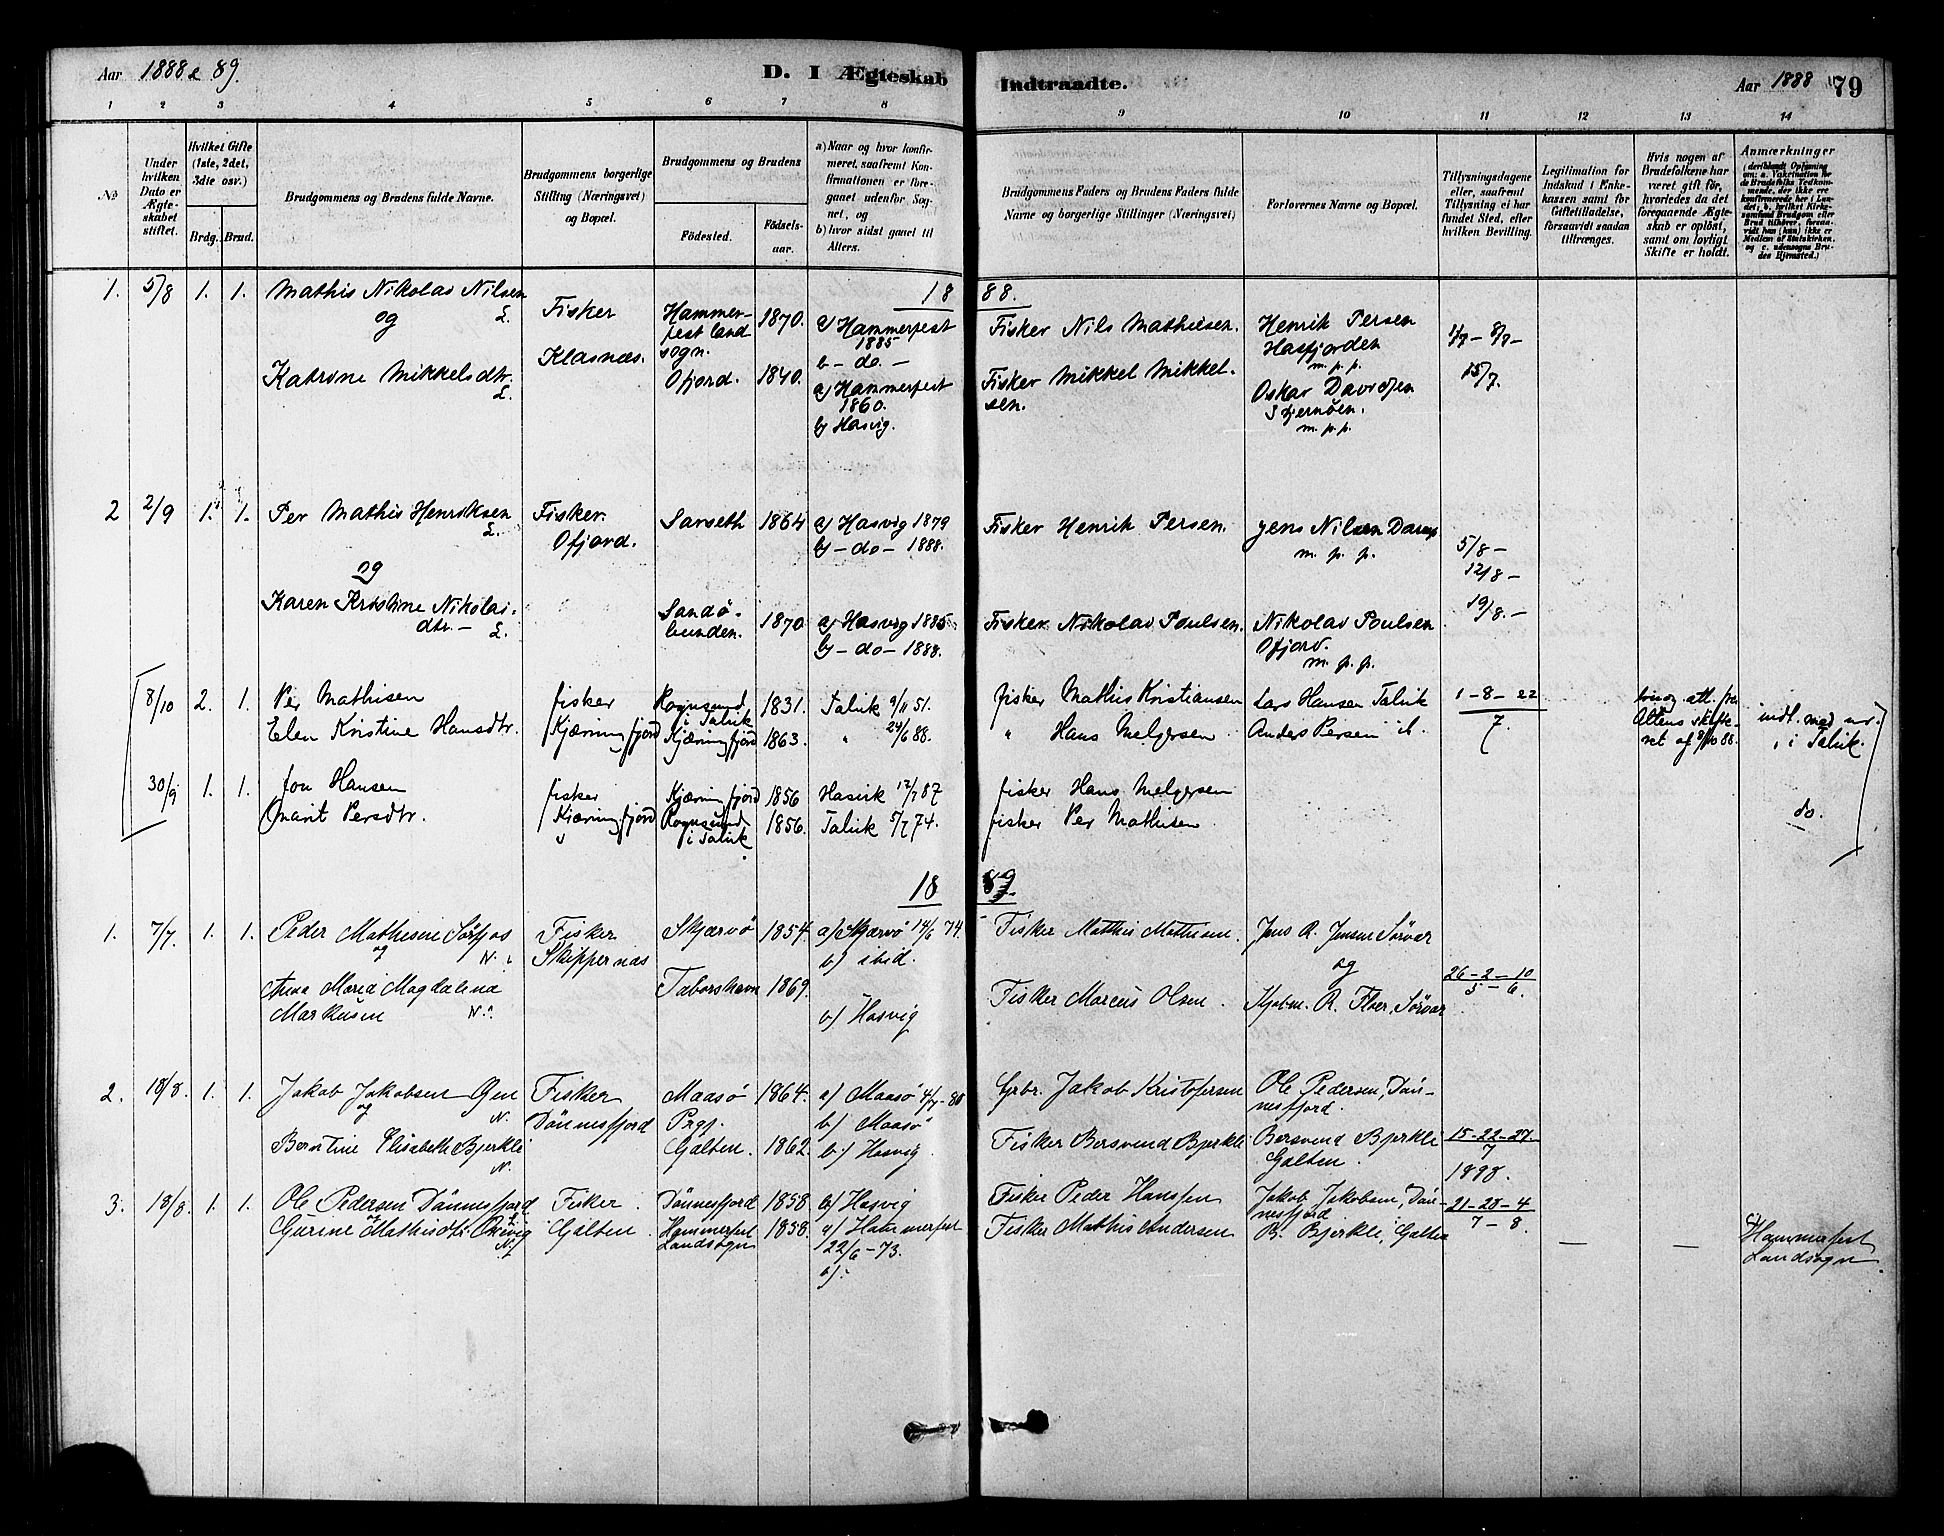 Aar 1888 & 89.
D. I Ægteskab Indtraadte.
Aar 1888 79
1 2 3 4 5 6 7 8 9 10 11 12 13 14
No
Under hvilken Dato er Ægteskabet stiftet.
Hvilket Gifte (1ste, 2det, 3die osv.)
Brdg. Brud.
Brudgommens og Brudens fulde Navne.
Brudgommens borgerlige Stilling (Næringsvei) og Bopæl.
Brudgommens og Brudens
Fødested.
Fødselsaar.
a) Naar og hvor konfirmeret, saafremt Konfirmationen er foregaaet udenfor Sognet, og
b) hvor sidst gaaet til Alters.
Brudgommens Faders og Brudens Faders fulde Navne og borgerlige Stillinger (Næringsvei)
Forlovernes Navne og Bopæl.
Tillysningsdagene eller, saafremt Tillysning ei har fundet Sted, efter hvilken Bevilling.
Legitimation for Indskud i Enkekassen samt for Giftetilladelse, forsaavidt saadan tiltrænges.
Hvis nogen af Brudefolkene har været gift før, hvorledes da det foregaaende Ægteskab er opløst, samt om lovligt Skifte er holdt.
Anmærkninger
(deriblandt Oplysning om: a. Vakcination for de Brudefolks Vedkommende, der ikke ere konfirmerede her i Landet; b. hvilket Kirkesamfund Brudgom eller Brud tilhører, forsaavidt han (hun) ikke er Medlem af Statskirken, og c. udensogns Brudes Hjemsted.)
1888.
1. 5/8 1. 1. Mathis Nikolai Nilsen L. og
Fisker Klasnæs.
Hammerfest landsogn. 1870. a) Hammerfest 1885 b - do -
Fisker Nils Mathiesen. Henrik Persen Hasfjorden m. p. p.
1/7 - 8/7 - 15/7.
Katrine Mikkelsdtr. L.
Ofjord. 1840. a) Hammerfest 1860. b) Hasvig.
Fisker Mikkel Mikkelsen. Oskar Stjernøen. m. p. p.
2 2/9 1. 1. Per Mathis Henriksen L.
Fisker. Ofjord.
Sarseth 1864 a) Hasvig 1879 b) - do - 1888.
Fisker Henrik Persen. Jens Nilsen m. p. p.
5/8 - 12/8 - 19/8. -
og
Karen Kristine Nikolaidtr. - L.
Sandøbunden. 1870 a) Hasvig 1885 b) - do - 1888.
Fisker Nikolai Poulsen. Nikolai Poulsen Ofjord. m. p. p.
8/10 2. 1. Per Mathisen
fisker Kjærringfjord
Rognsund i Talvik 1831. Talvik 9/11 51.
fisker Mathis Kristiansen Lars Hansen Talvik 1 - 8 - 22 / 7.
att. fra Altens skifteret af 8/10 88.
indt. med nr. , i Talvik.
Elen Kristine Hansdtr.
Kjærringfjord 1863. " 24/6 88.
" Hans Melgersen Anders Persen ib.
30/9 1. 1. Jon Hansen
fisker Kjærringfjord
Kjærringfjord 1856 Hasvik 12/7 87
fisker Hans Melgersen
do.
Marit Persdtr.
Rognsund i Talvik 1856. Talvik 5/7 74.
fisker Per Mathisen
1889.
1. 7/7. 1. 1. Peder Mathisen Sørfjos N. og
Fisker Skippernæs
Skjærvø 1854. a) Skjærvø 14/6 74. b) ibid.
Fisker Matthis Mathisen. Jens R. Jensen Sørvær og
26 - 2 - 10 / 5 - 6.
Anna Maria Magdalena Markusen N.
1869. b) Hasvig
Fisker Marcus Olsen. Kjøbm. R. Floer, Sørvær
2. 18/8. 1. 1. Jakob Jakobsen N. og
Fisker Dönnesfjord
Maasø Prgj. 1864. a) Maasø b) Maasø
Jakob Kristofersen Ole Pedersen, Dönnesfjord.
Berntine Elisabeth Bjerkli N.
Galten. 1862. b) Hasvig
Fisker Bersvend Bjerkli Bersvend Bjerkli Galten. 15 - 22 - 27. / 7
1898.
3. 18/8. 1. 1. Ole Pedersen Dönnesfjord og
Fisker. Galten.
Dönnesfjord 1858 b) Hasvig
Fisker Peder Hanssen Jakob Jakobsen, Dönnesfjord 21 - 28 - 4 / 7 - 8.
Gurine Mathisdtr. N.
Hammerfest Landsogn 1858. a) Hammerfest 22/6 - 73. b)
Fisker Mathis Andersen B. Bjerkli, Galten
— —
c) Hammerfest Landsogn.